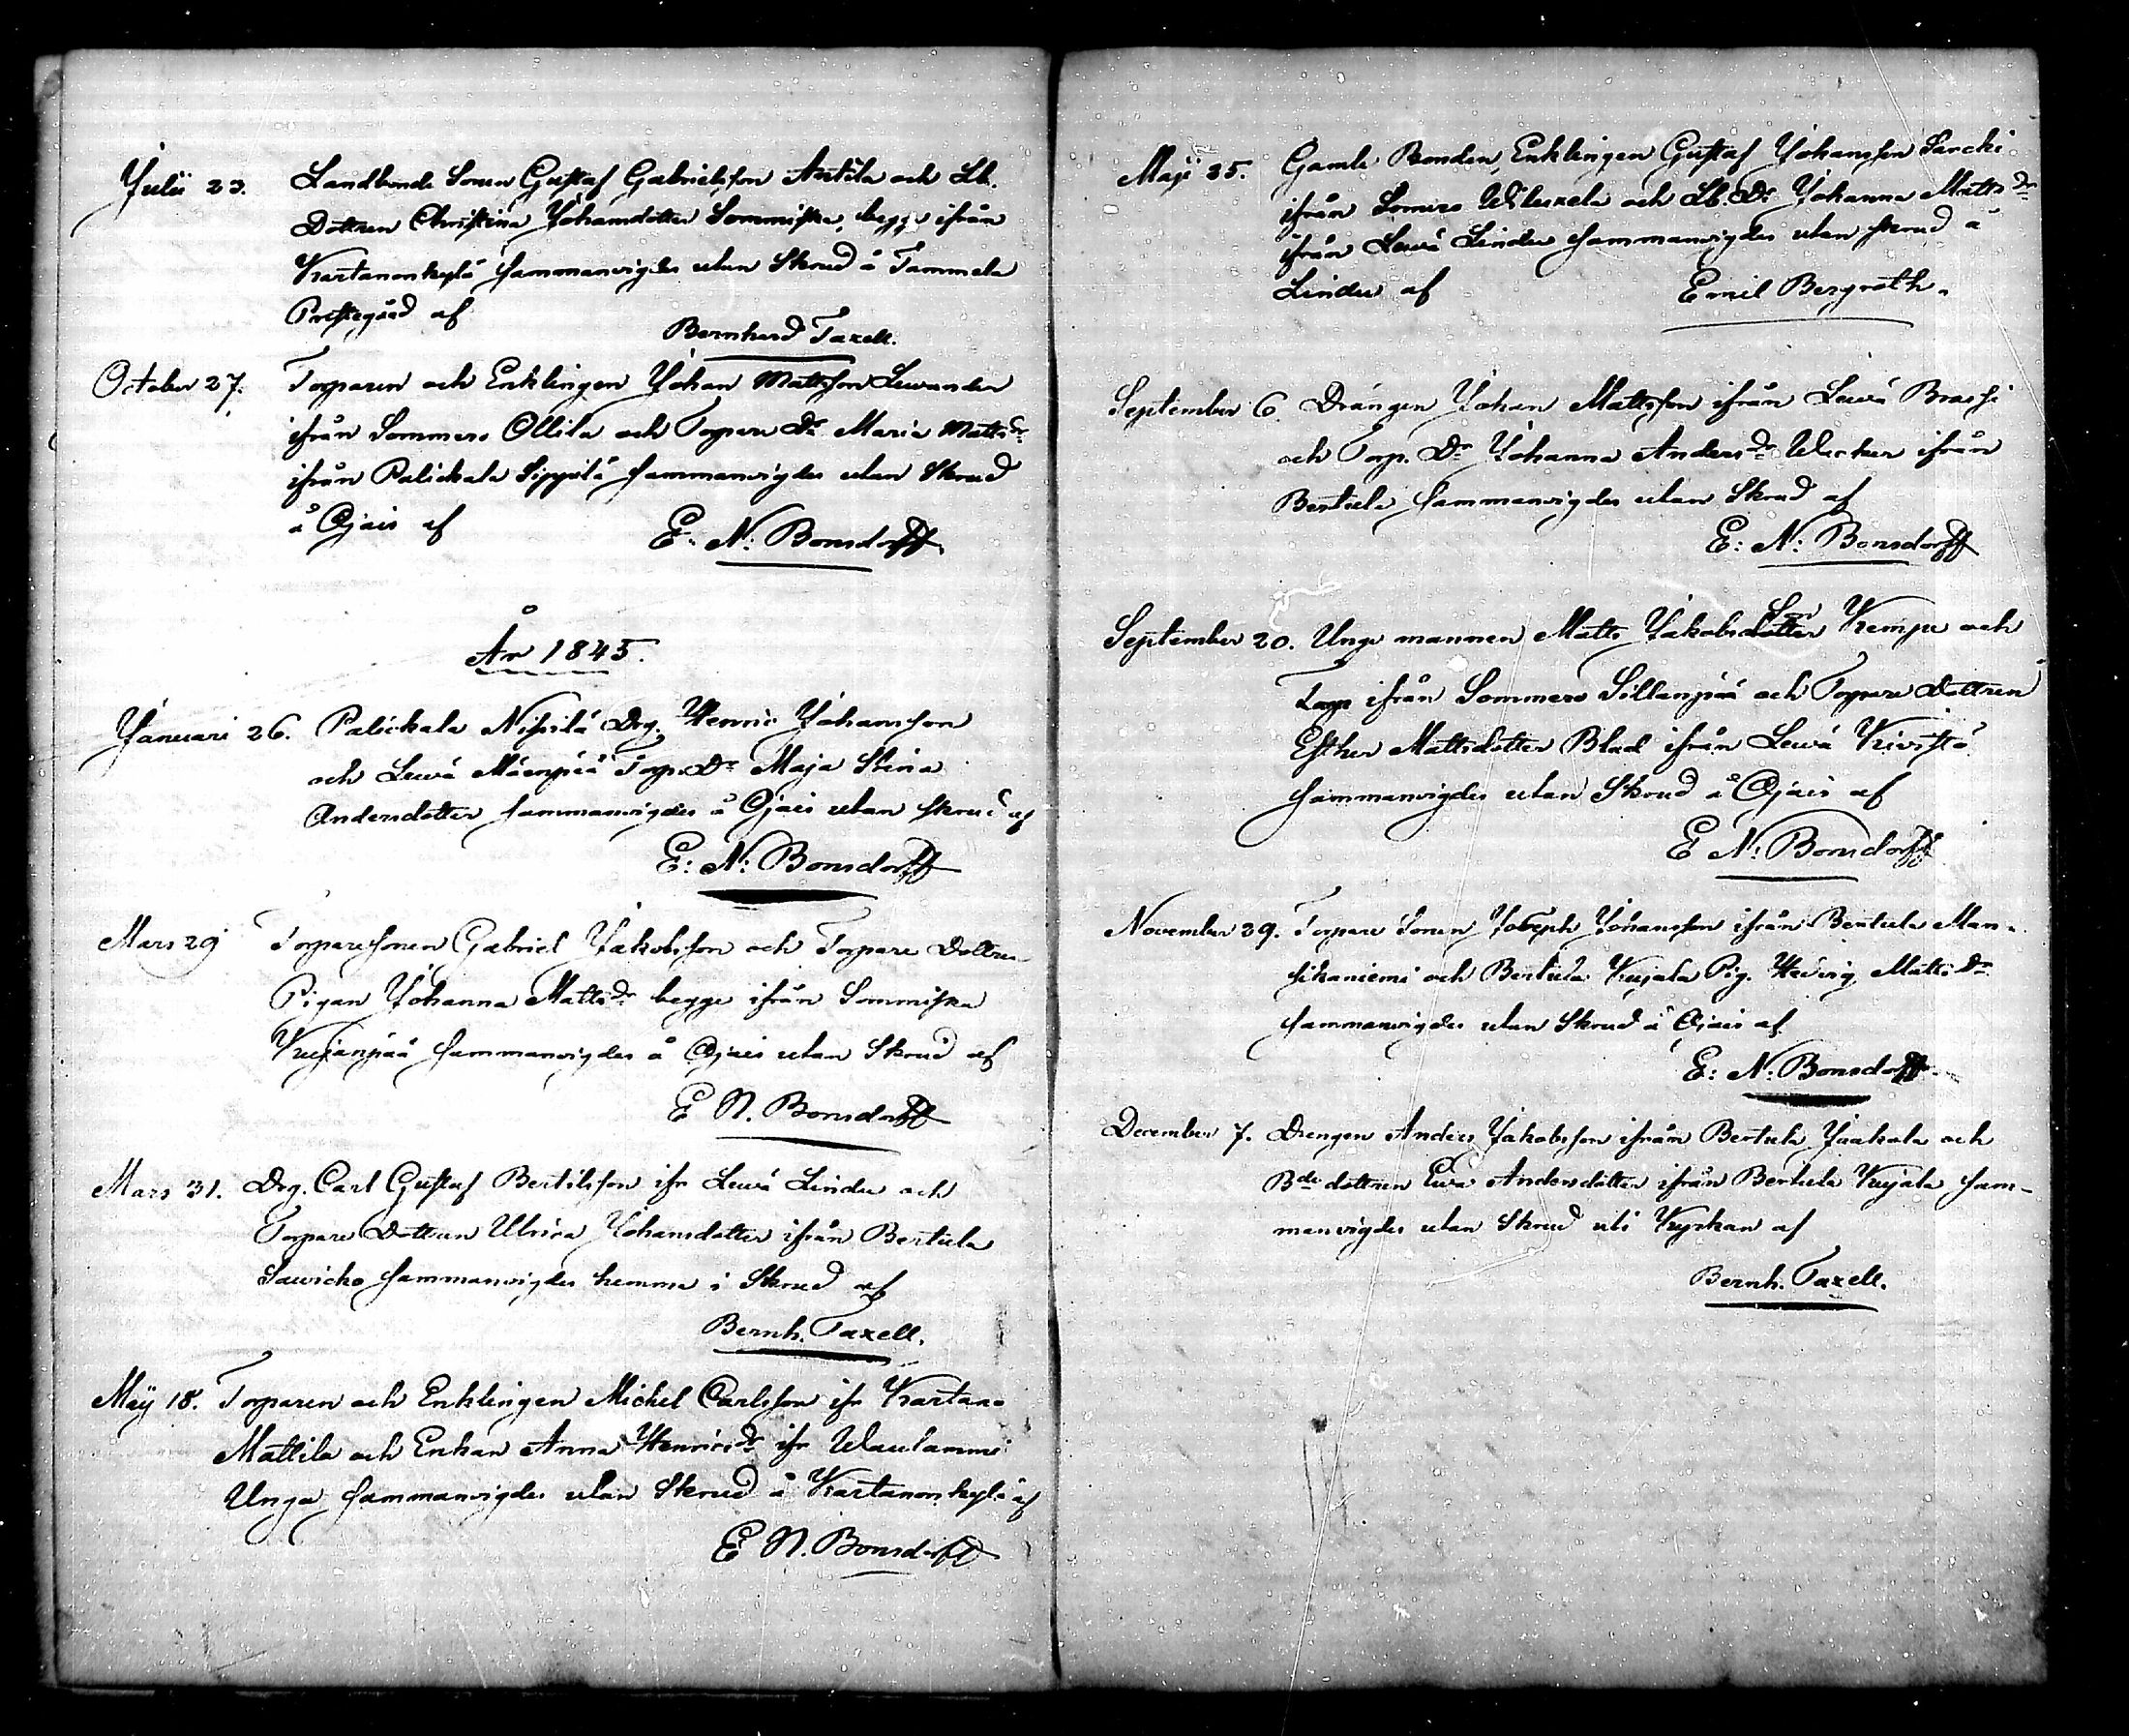 Julii 23. Landbonde Sonen Gustaf Gabrielsson Anttila och Lb.
Dottren Christina Johansdotter Sommiska, begge ifrån
Kartanonkylä sammanvigdes utan Skrud å Tammela
Prestegård af
Bernhard Taxell.
October 27. Torparen och Enklingen Johan Mattsson Lewander
ifrån Sommero Ollila och Torpare Dr Maria Mattsdr
ifrån Palickala Sippilä sammanvigdes utan Skrud
å Ojais af
E: N: Bonsdorff
År 1845.
Januari 26. Palickala Nissilä Drg. Henric Johansson
och Lewä Mäenpää Torp. Dr Maja Stina
Andersdotter sammanvigdes å Ojais utan skrud af
E: N: Bonsdorff
Mars 29 Torparesonen Gabriel Jakobsson och Torpare Dottren
Pigan Johanna Mattsdr begge ifrån Sommiska
Kujanpää sammanvigdes å Ojais utan Skrud af
E N. Bonsdorff
Mars 31. Drg. Carl Gustaf Bertilsson ifr Lewä Lindu och
Torpare Dottren Ulrica Johansdotter ifrån Bertula
Sawicko sammanvigdes hemma i Skrud af
Bernh. Taxell.
Maji 18. Torparen och Enklingen Michel Carlsson ifr Kartano
Mattila och Enkan Anna Henricsdr ifr Waulammi
Unga sammanvigdes utan Skrud å Kartanonkylä af
E N. Bonsdorff
Maji 25. Gamle Bonden, Enklingen Gustaf Johansson Sarcki
ifrån Somero Wiluxela och Lb. Dr Johanna Mattsdr
ifrån Lewä Lindu sammanvigdes utan skrud å
Lindu af Emil Bergroth.
September 6 Drängen Johan Mattsson ifrån Lewä Brassi
och Torp. Dr Johanna Andersdr Wacker ifrån
Bertula sammanvigdes utan Skrud af
E: N: Bonsdorff
September 20. Unge mannen Matts Jakobsdotter Son Kempe och
Torp ifrån Sommero Sillanpää och Torpare Dottren
Esther Mattsdotter Blad ifrån Lewä Kivistö
sammanvigdes utan Skrud å Ojais af
E N: Bonsdorff
November 29. Torpare Sonen Joseph Johansson ifrån Bertula Man-
sikaniemi och Bertula Kujala Pig. Hedvig Mattsdr
sammanvigdes utan Skrud å Ojais af
E: N: Bonsdorff
December 7. Drengen Anders Jakobsson ifrån Bertula Jaakola och
Bde dottren Ewa Andersdotter ifrån Bertula Kujala sam-
manvigdes utan Skrud uti Kyrkan af
Bernh. Taxell.